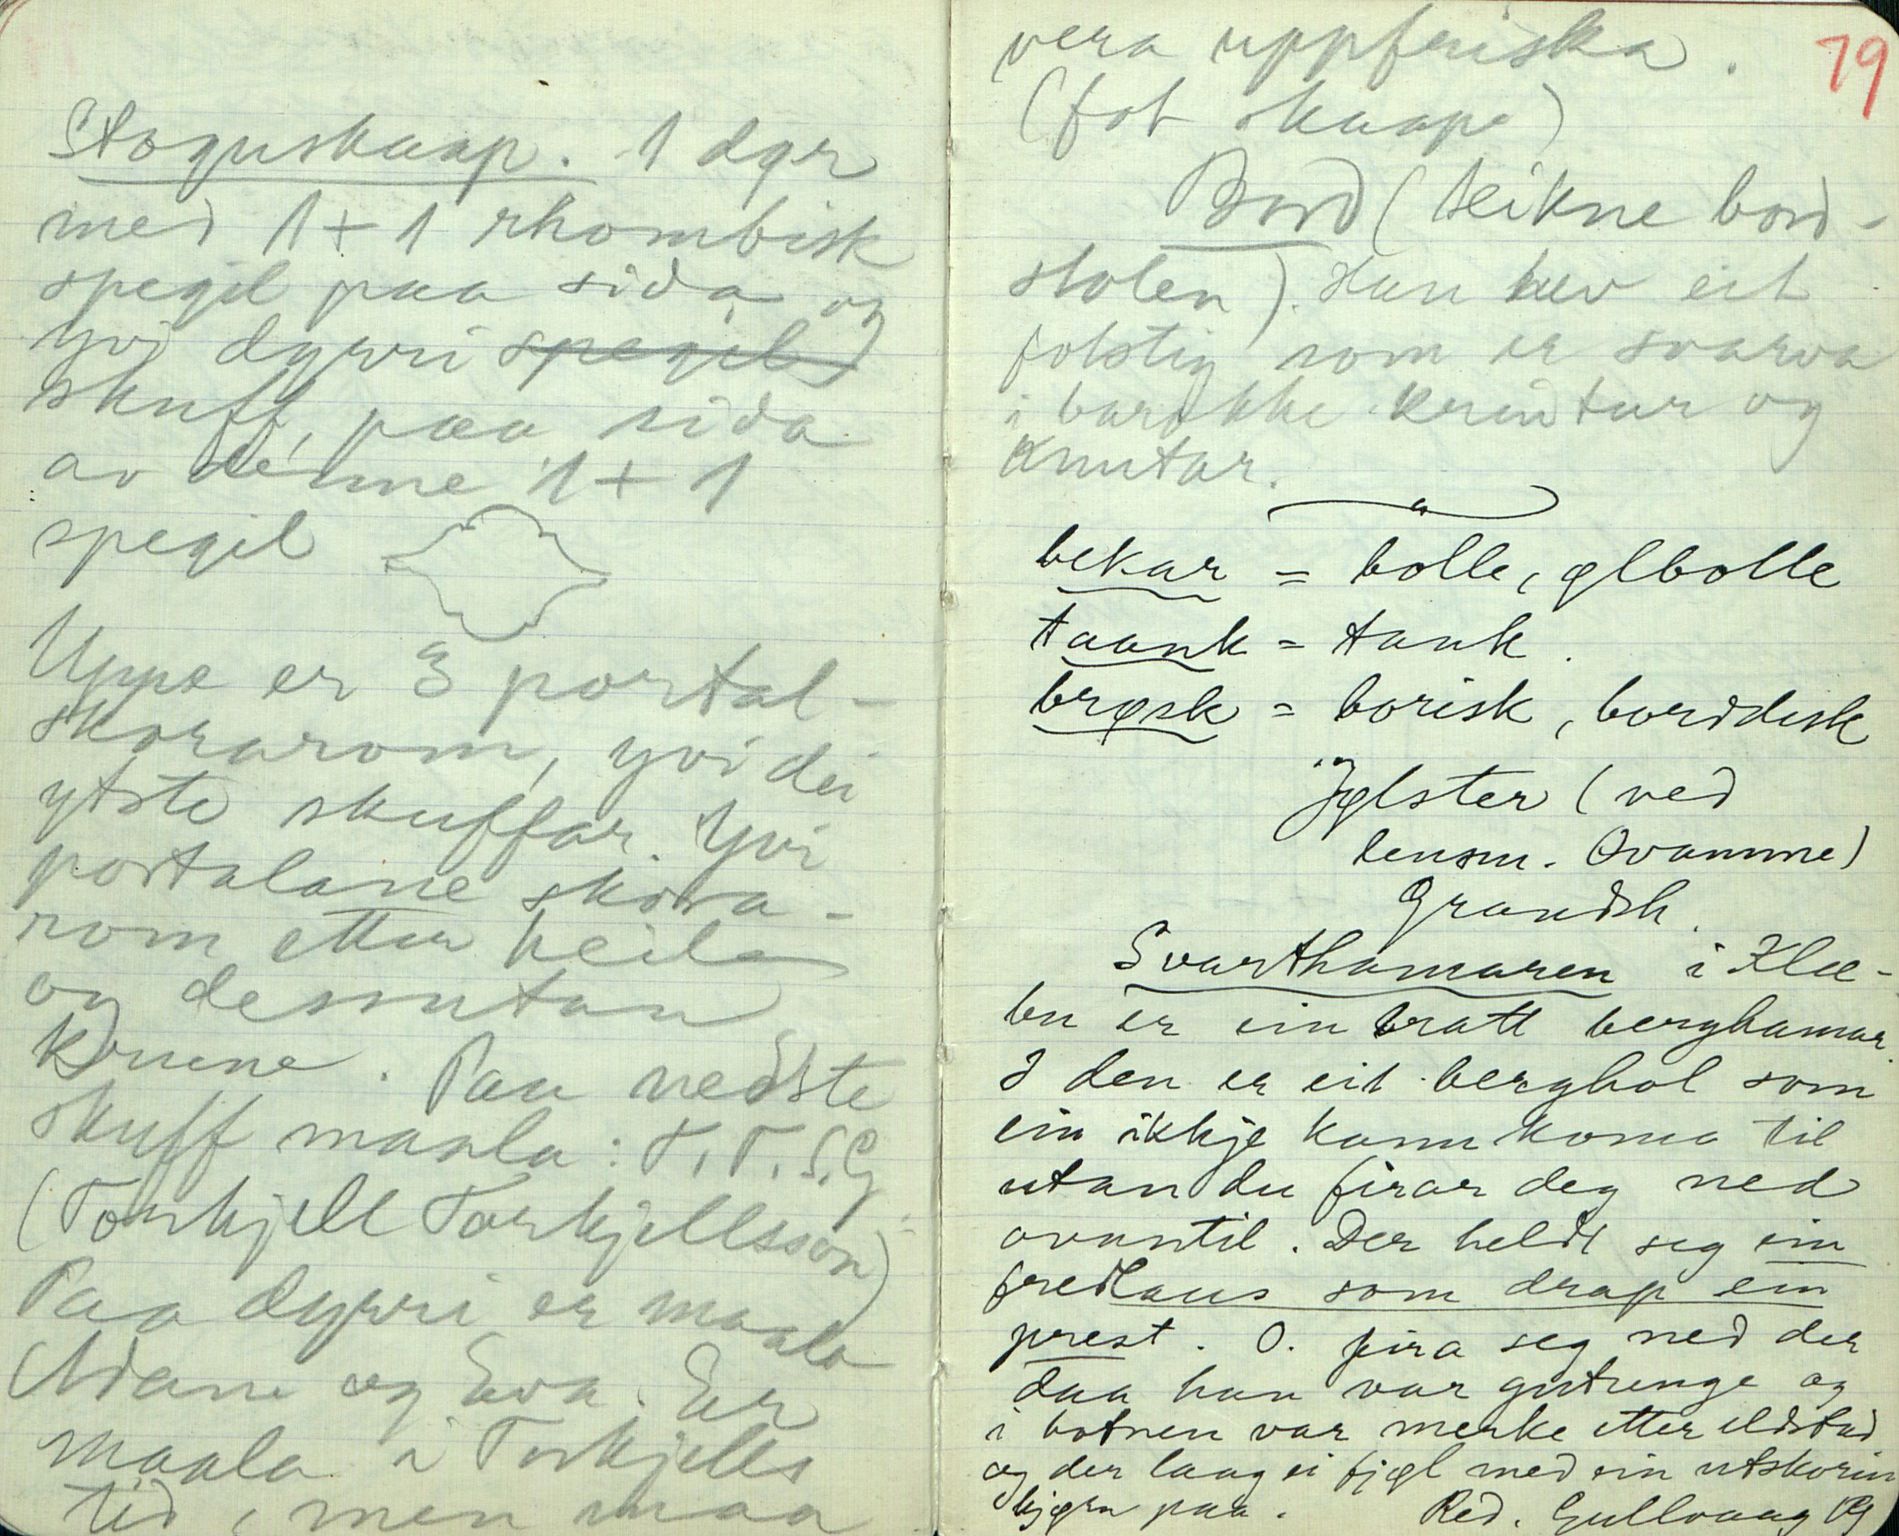 Stoguskaap. 1 dør
med 1+1 rhombisk
spegil paa sida og
yvi dyrri spegil
skuff, paa sida
av denne 1+1
spegil
Uppe er 3 portal-
skorarom, yvi dei
ytste skuffar. Yvi
portalane skora-
rom etter heila
og dessutan
Krune. Paa nedste
skuff maala: T. T. S. G
(Torkjell Torkjellsson)
Paa dyrri er maala
Adam og Eva. Er
maala i Torkjells
tid, men maa
79
vera uppfriska.
(fot skaape)
Bord (teikne bord-
stolen). Han hev eit
fotstig som er svarva
i barokke krintur og
Knutar.
bekar = bolle, ølbolle
taank = tank.
brøsk = borisk, borddisk
Jølster (ved
lensm. Ovamme)
Grandsh.
Svarthamaren i Klæ-
bu er ein bratt berghamar.
I den er eit berghol som
ein ikkje kann koma til
utan du firar deg ned
ovantil. Der heldt seg ein
fredlaus som drap ein
prest. O. fira seg ned der
daa han var gutunge og
i botnen var merke etter eldstad
og der laag ei fjøl med ein utskorin
bjørn paa. Red. Gullvaag